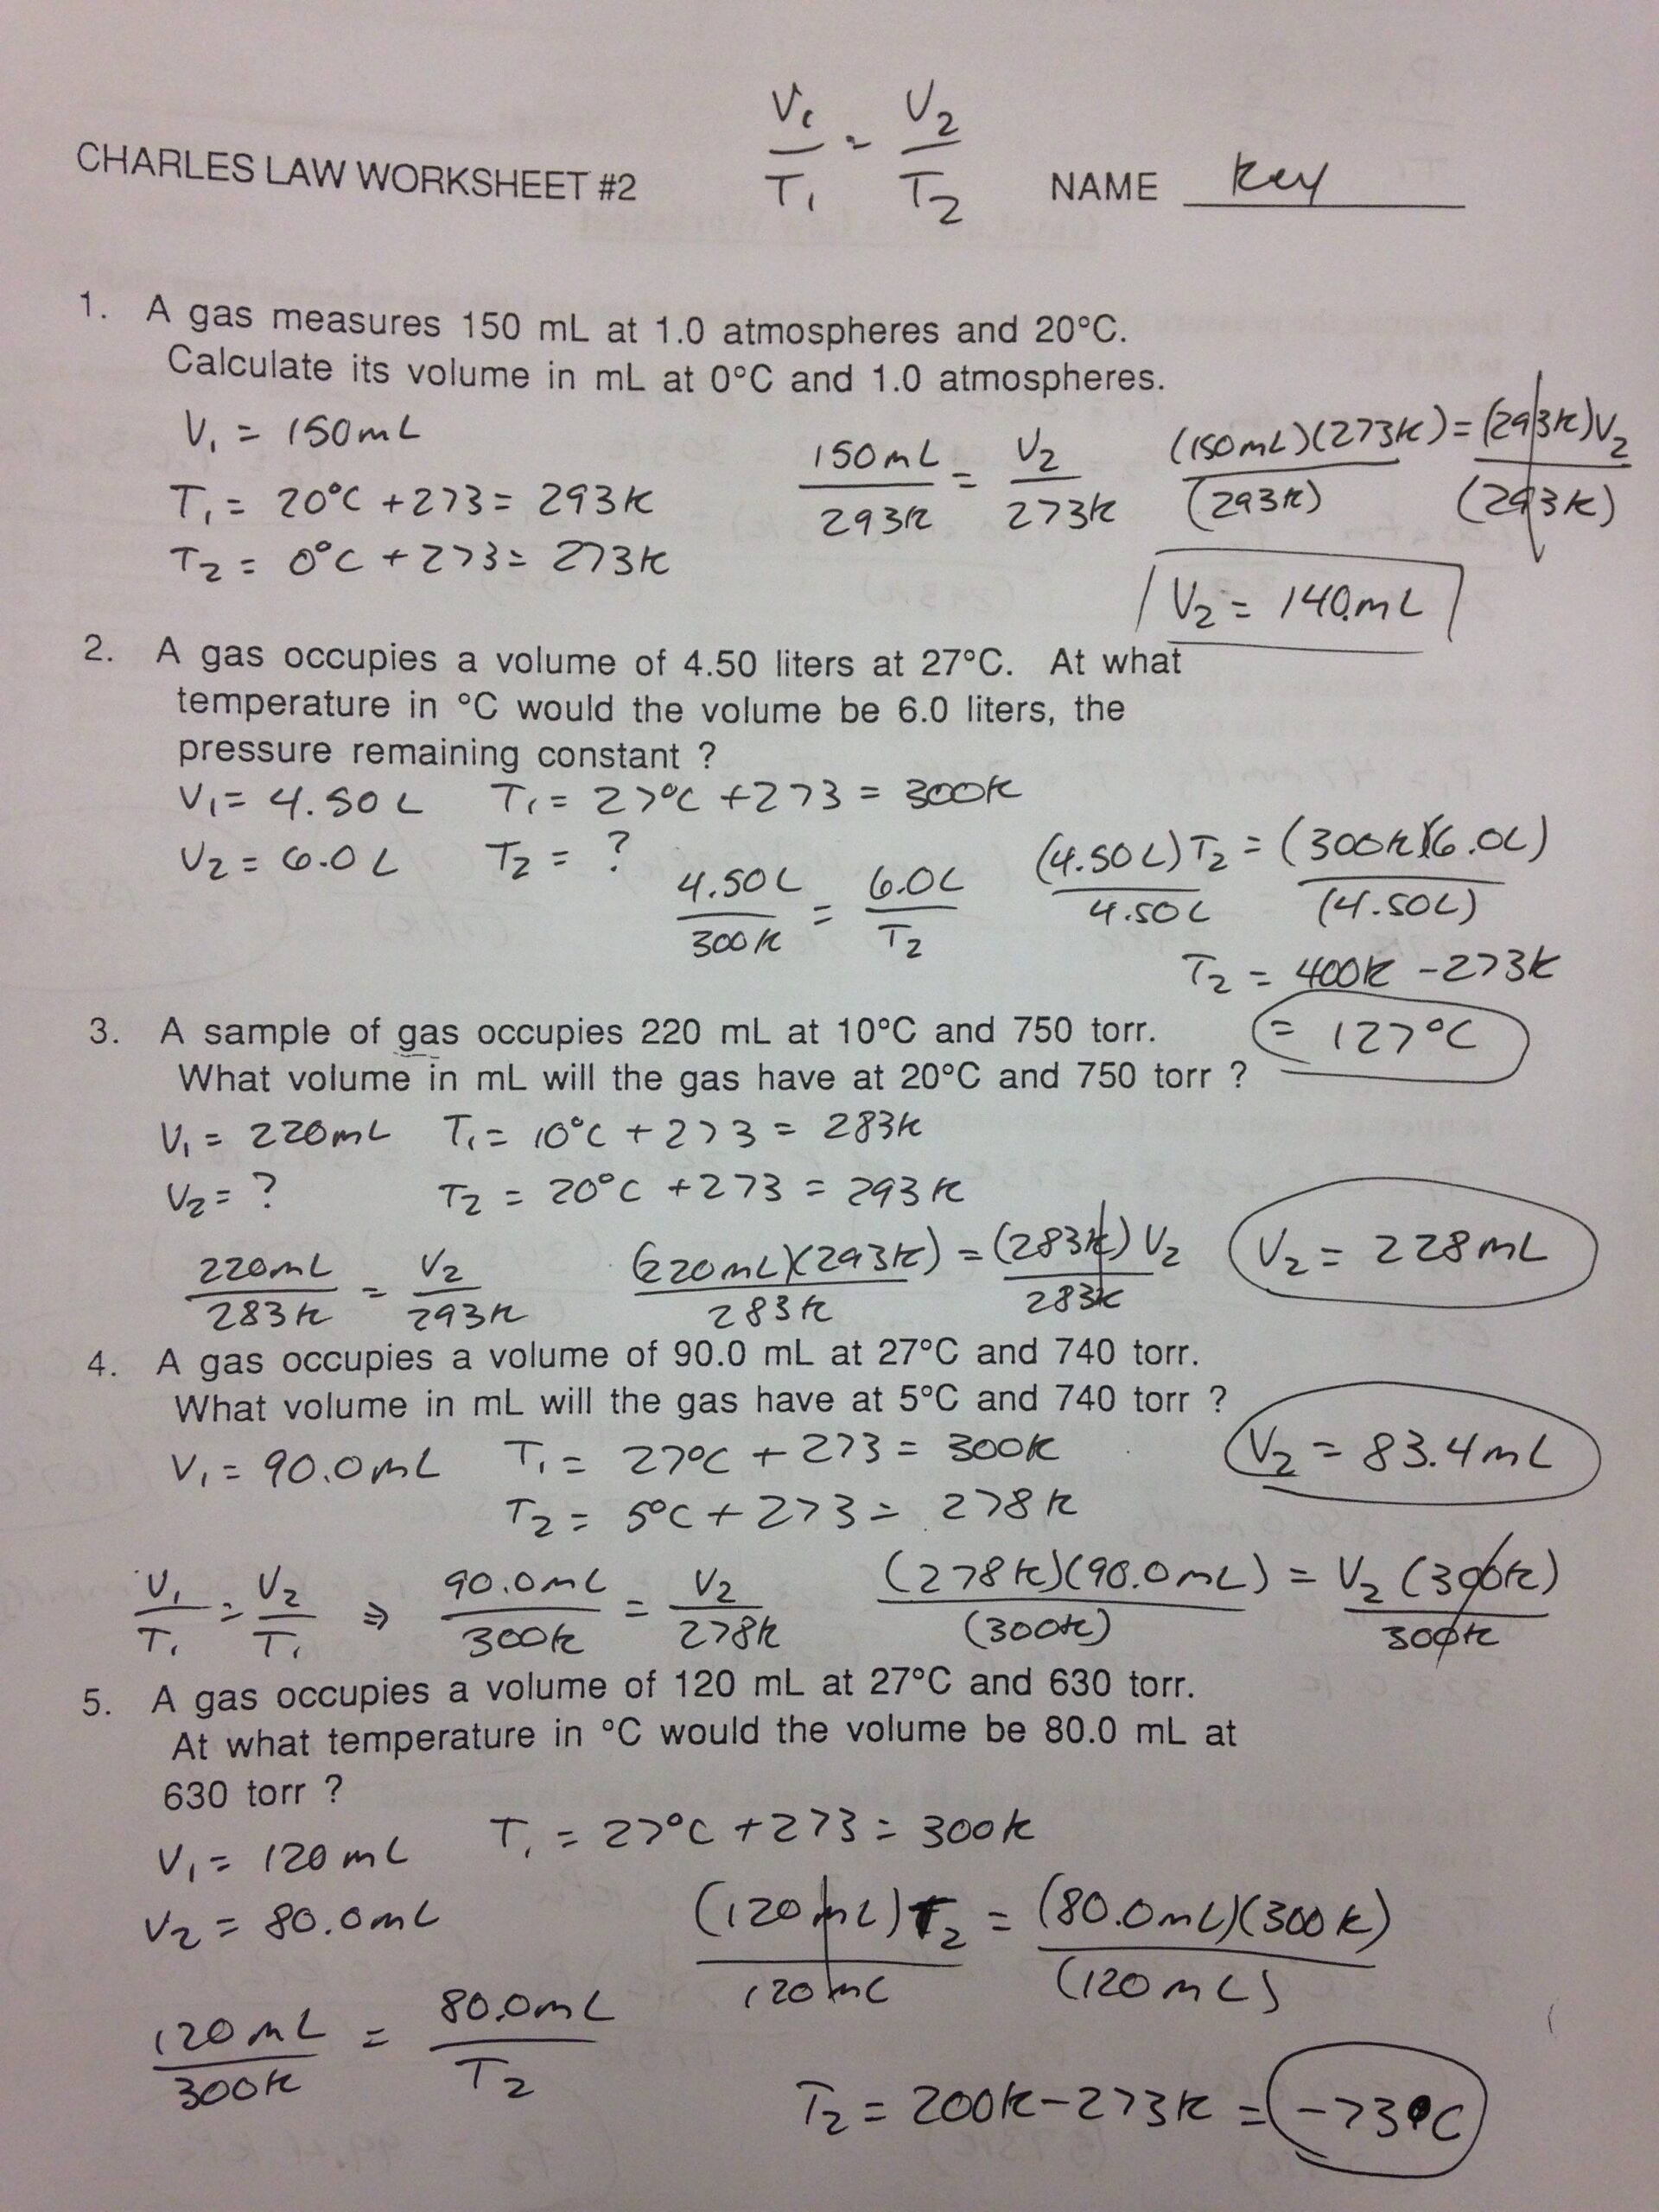 V₁/T₁ = V₂/T₂
CHARLES LAW WORKSHEET #2 NAME Key
1. A gas measures 150 mL at 1.0 atmospheres and 20°C.
Calculate its volume in mL at 0°C and 1.0 atmospheres.
V₁ = 150mL
T₁ = 20°C + 273 = 293K
T₂ = 0°C + 273 = 273K
150mL/293K = V₂/273K (150mL)(273K)/(293K) = (293K)V₂/(293K)
V₂ = 140.mL
2. A gas occupies a volume of 4.50 liters at 27°C. At what
temperature in °C would the volume be 6.0 liters, the
pressure remaining constant ?
V₁ = 4.50L T₁ = 27°C + 273 = 300K
V₂ = 6.0L T₂ = ?
4.50L/300K = 6.0L/T₂ (4.50L)T₂/4.50L = (300K)(6.0L)/(4.50L)
T₂ = 400K - 273K
= 127°C
3. A sample of gas occupies 220 mL at 10°C and 750 torr.
What volume in mL will the gas have at 20°C and 750 torr ?
V₁ = 220mL T₁ = 10°C + 273 = 283K
V₂ = ? T₂ = 20°C + 273 = 293K
220mL/283K = V₂/293K (220mL)(293K)/283K = (283K)V₂/283K V₂ = 228mL
4. A gas occupies a volume of 90.0 mL at 27°C and 740 torr.
What volume in mL will the gas have at 5°C and 740 torr ?
V₁ = 90.0mL T₁ = 27°C + 273 = 300K V₂ = 83.4mL
T₂ = 5°C + 273 = 278K
V₁/T₁ = V₂/T₁ ⇒ 90.0mL/300K = V₂/278K (278K)(90.0mL)/(300K) = V₂(300K)/300K
5. A gas occupies a volume of 120 mL at 27°C and 630 torr.
At what temperature in °C would the volume be 80.0 mL at
630 torr ?
V₁ = 120mL T₁ = 27°C + 273 = 300K
V₂ = 80.0mL (120mL)T₂/120mL = (80.0mL)(300K)/(120mL)
120mL/300K = 80.0mL/T₂
T₂ = 200K - 273K = -73°C